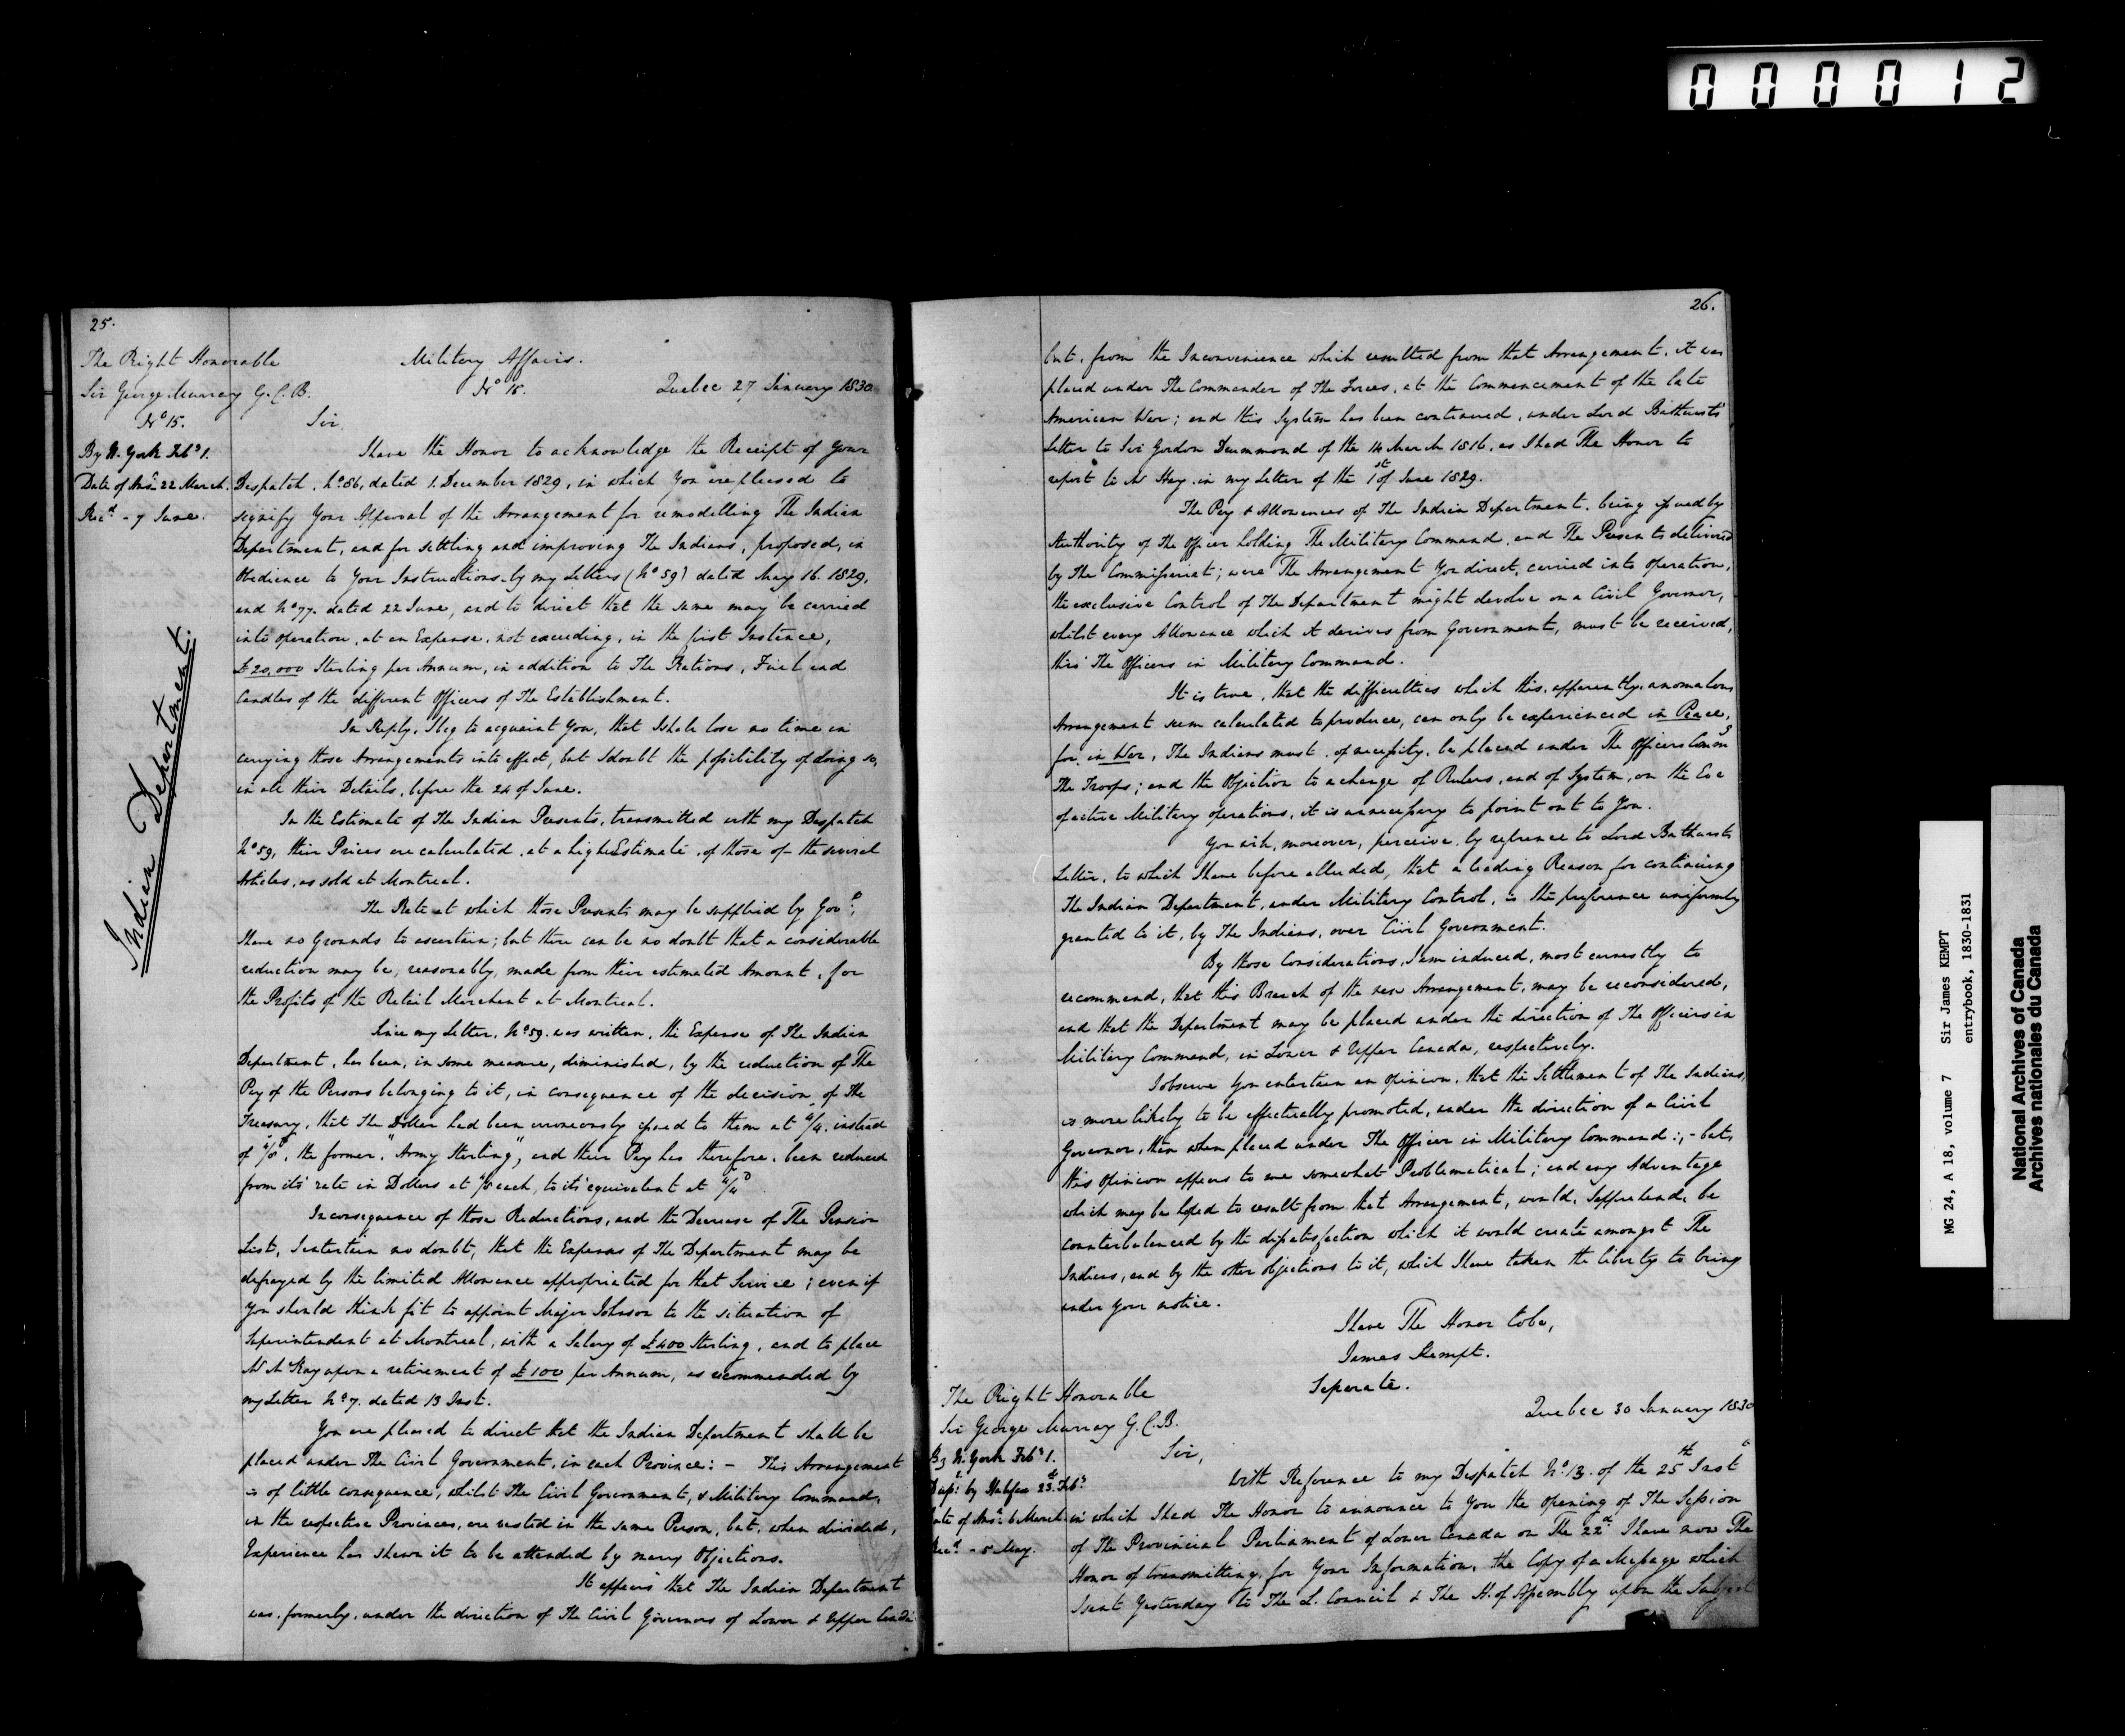 000012
25.
The Right Honorable
Sir George Murray G.C.B.
No 15.
By N. York Feby 1.
Date of Ansr 22 March.
Recd - 7 June.
Indian Department.
Military Affairs.
No 15.
Quebec 27 January 1830
Sir,
I have the Honor to acknowledge the Receipt of Your
Despatch, No 86, dated 1. December 1829, in which You are pleased to
signify Your Approval of the Arrangement for remodelling The Indian
Department, and for settling and improving The Indians, proposed, in
Obedience to Your Instructions, by my Letters (No 59) dated May 16. 1829,
and No 77. dated 22 June, and to direct that the same may be carried
into operation, at an Expense, not exceeding, in the first Instance,
£20,000 Sterling per Annum, in addition to The Rations, Fuel and
Candles of the different Officers of The Establishment.
In Reply, I beg to acquaint You, that I shall lose no time in
carrying those Arrangements into effect, but I doubt the possibility of doing so,
in all their Details, before the 24 of June.
In the Estimate of The Indian Presents, transmitted with my Despatch
No 59, their Prices are calculated, at a high Estimate, of those of the several
Articles, as sold at Montreal.
The Rate at which those Presents may be supplied by Govt,
I have no Grounds to ascertain; but there can be no doubt that a considerable
reduction may be, reasonably, made from their estimated Amount, for
the Profits of the Retail Merchant at Montreal.
Since my Letter, No 59. was written, the Expense of The Indian
Department, has been, in some measure, diminished, by the reduction of The
Pay of the Persons belonging to it, in consequence of the decision of The
Treasury, that The Dollar had been erroneously issued to them at 4/4. instead
of 4/8, the former, "Army Sterling", and their Pay has therefore, been reduced
from its rate in Dollars at each, to its equivalent at 4/4
In consequence of those Reductions, and the Decrease of The Pension
List, I entertain no doubt, that the Expenses of The Department may be
defrayed by the limited Allowance appropriated for that Service; even if
You should think fit to appoint Major Johnson to the situation of
Superintendent at Montreal, with a Salary of £400 Sterling, and to place
Mr McKay upon a retirement of £100 per Annum, as recommended by
my Letter No 7. dated 13 Inst.
You are pleased to direct that the Indian Department shall be
placed under The Civil Government, in each Province: - This Arrangement
is of little consequence, whilst The Civil Government, & Military Command,
in the respective Provinces, are vested in the same Person, but, when divided,
Experience has shewn it to be attended by many Objections.
It appears that The Indian Department
was, formerly, under the direction of The Civil Governors of Lower & Upper Canada
26.
but, from the Inconvenience which resulted from that Arrangement, it was
placed under The Commander of The Forces, at the Commencement of the late
American War; and this System has been continued, under Lord Bathurst's
Letter to Sir Gordon Drummond of the 14 March 1816, as I had The Honor to
report to Mr Hay, in my Letter of the 1st of June 1829.
The Pay & Allowances of The Indian Department, being issued by
Authority of The Officer holding The Military Command, and The Presents delivered
by The Commissariat; were The Arrangement You direct, carried into operation,
the exclusive Control of The Department might devolve on a Civil Governor,
whilst every Allowance which it derives from Government, must be received,
thro' The Officers in Military Command.
It is true, that the difficulties which this, apparently, anomalous
Arrangement seem calculated to produce, can only be experienced in Peace,
for, in War, The Indians must, of necessity, be placed under The Officers Commg
The Troops; and the Objection to a change of Rulers, and of System, on the Eve
of active Military operations, it is unnecessary to point out to You.
You will, moreover, perceive, by reference to Lord Bathurst's
Letter, to which I have before alluded, that a leading Reason for continuing
The Indian Department, under Military Control, is the preference uniformly
granted to it, by The Indians, over Civil Government.
By those Considerations, I am induced, most earnestly to
recommend, that this Branch of the new Arrangement, may be reconsidered,
and that the Department may be placed under the direction of The Officers in
Military Command, in Lower & Upper Canada, respectively.
I observe You entertain an Opinion, that the Settlement of The Indians,
is more likely to be effectually promoted, under the direction of a Civil
Governor, than when placed under The Officer in Military Command:, - but,
this Opinion appears to me somewhat Problematical; and any Advantage
which may be hoped to result from that Arrangement, would, I apprehend, be
counterbalanced by the dissatisfaction which it would create amongst The
Indians, and by the other objections to it, which I have taken the liberty to bring
under Your notice.
I have The Honor to be,
James Kempt.
Separate.
The Right Honorable
Sir George Murray G.C.B.
By N. York Feby 1.
Dupt by Halifax 23d Feby
Date of Ansr 6 March
Recd - 5 May.
Quebec 30 January 1830
Sir,
With Reference to my Despatch No 13. of the 25th Inst
in which I had The Honor to announce to You the opening of The Session
of The Provincial Parliament of Lower Canada on The 22d I have now The
Honor of transmitting, for Your Information, the Copy of a Message which
I sent Yesterday to The L. Council & The H. of Assembly upon the Subject
MG 24, A 18, volume 7 Sir James KEMPT
entrybook, 1830-1831
National Archives of Canada
Archives nationales du Canada